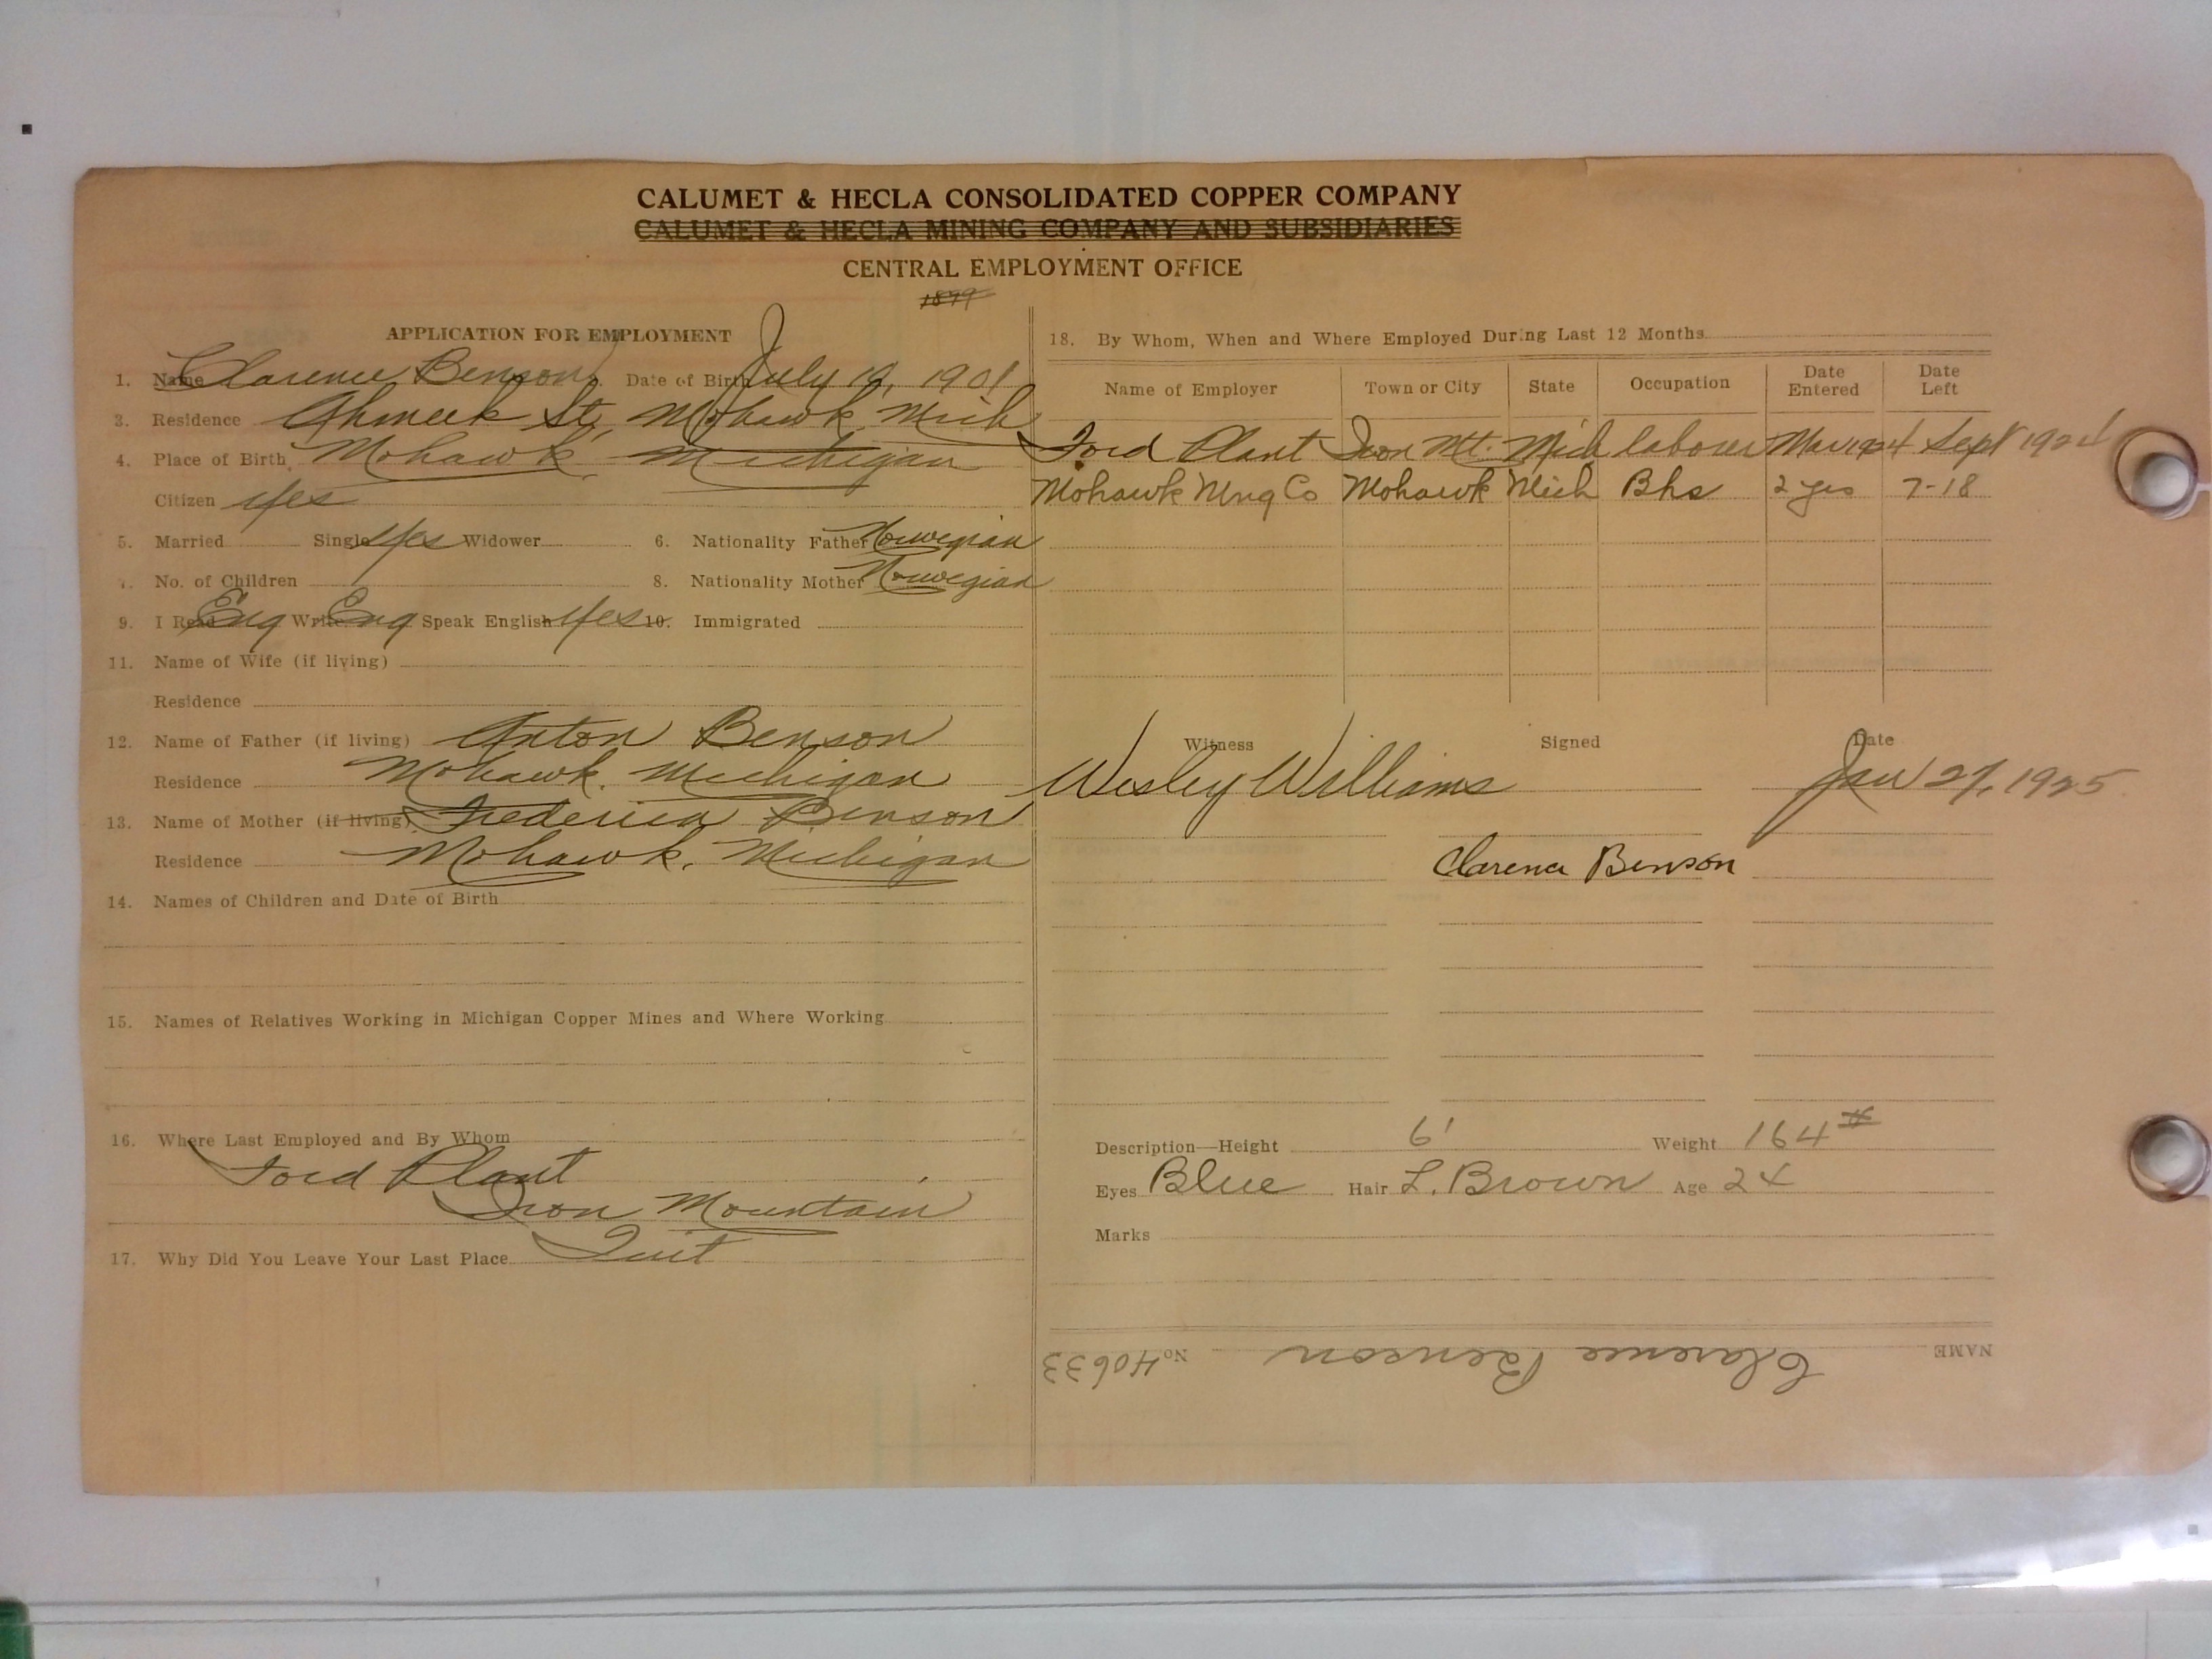 CALUMET & HECLA CONSOLIDATED COPPER COMPANY
CALUMET & HECLA MINING COMPANY AND SUBSIDIARIES
CENTRAL EMPLOYMENT OFFICE
APPLICATION FOR EMPLOYMENT
1. Name Clarence Benson Date of Birth July 19, 1901
3. Residence Ahmeek St, Mohawk, Mich
4. Place of Birth Mohawk, Michigan
Citizen Yes
5. Married Single Yes Widower 6. Nationality Father Norwegian
7. No. of Children 8. Nationality Mother Norwegian
9. I Read Eng Write Eng Speak English Yes 10. Immigrated
11. Name of Wife (if living)
Residence
12. Name of Father (if living) Anton Benson
Residence Mohawk, Michigan
13. Name of Mother (if living) Frederica Benson
Residence Mohawk, Michigan
14. Names of Children and Date of Birth
15. Names of Relatives Working in Michigan Copper Mines and Where Working
16. Where Last Employed and By Whom
Ford Plant
Iron Mountain
17. Why Did You Leave Your Last Place Quit
18. By Whom, When and Where Employed During Last 12 Months
Name of Employer Town or City State Occupation Date Entered Date Left
Ford Plant Iron Mt. Mich laborer Mar 1924 Sept 1924
Mohawk Mng Co Mohawk Mich Bhs 2 yrs 7-18
Witness Signed Date
Wesley Williams Jan 27, 1925
Clarence Benson
Description—Height 6' Weight 164#
Eyes Blue Hair L. Brown Age 24
Marks
NAME Clarence Benson No 40633